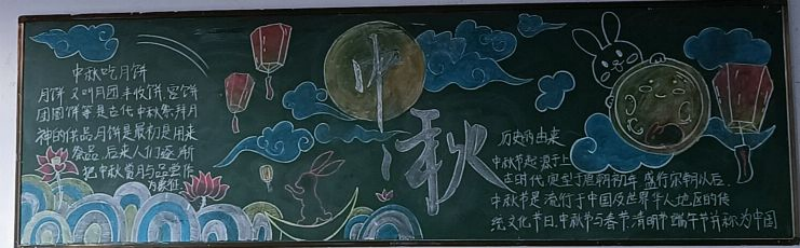 中秋吃月饼
月饼又叫月团丰收饼宫饼
团圆饼等是古代中秋祭拜月
神的供品月饼是最初是用来
祭品,后来人们逐渐
把中秋赏月与品尝
为象征
中秋
历史的由来
中秋节起源于上
古时代,定型于唐朝初年,盛行宋朝以后.
中秋节是流行于中国及世界华人地区的传
统文化节日,中秋节与春节,清明节端午节并称为中国